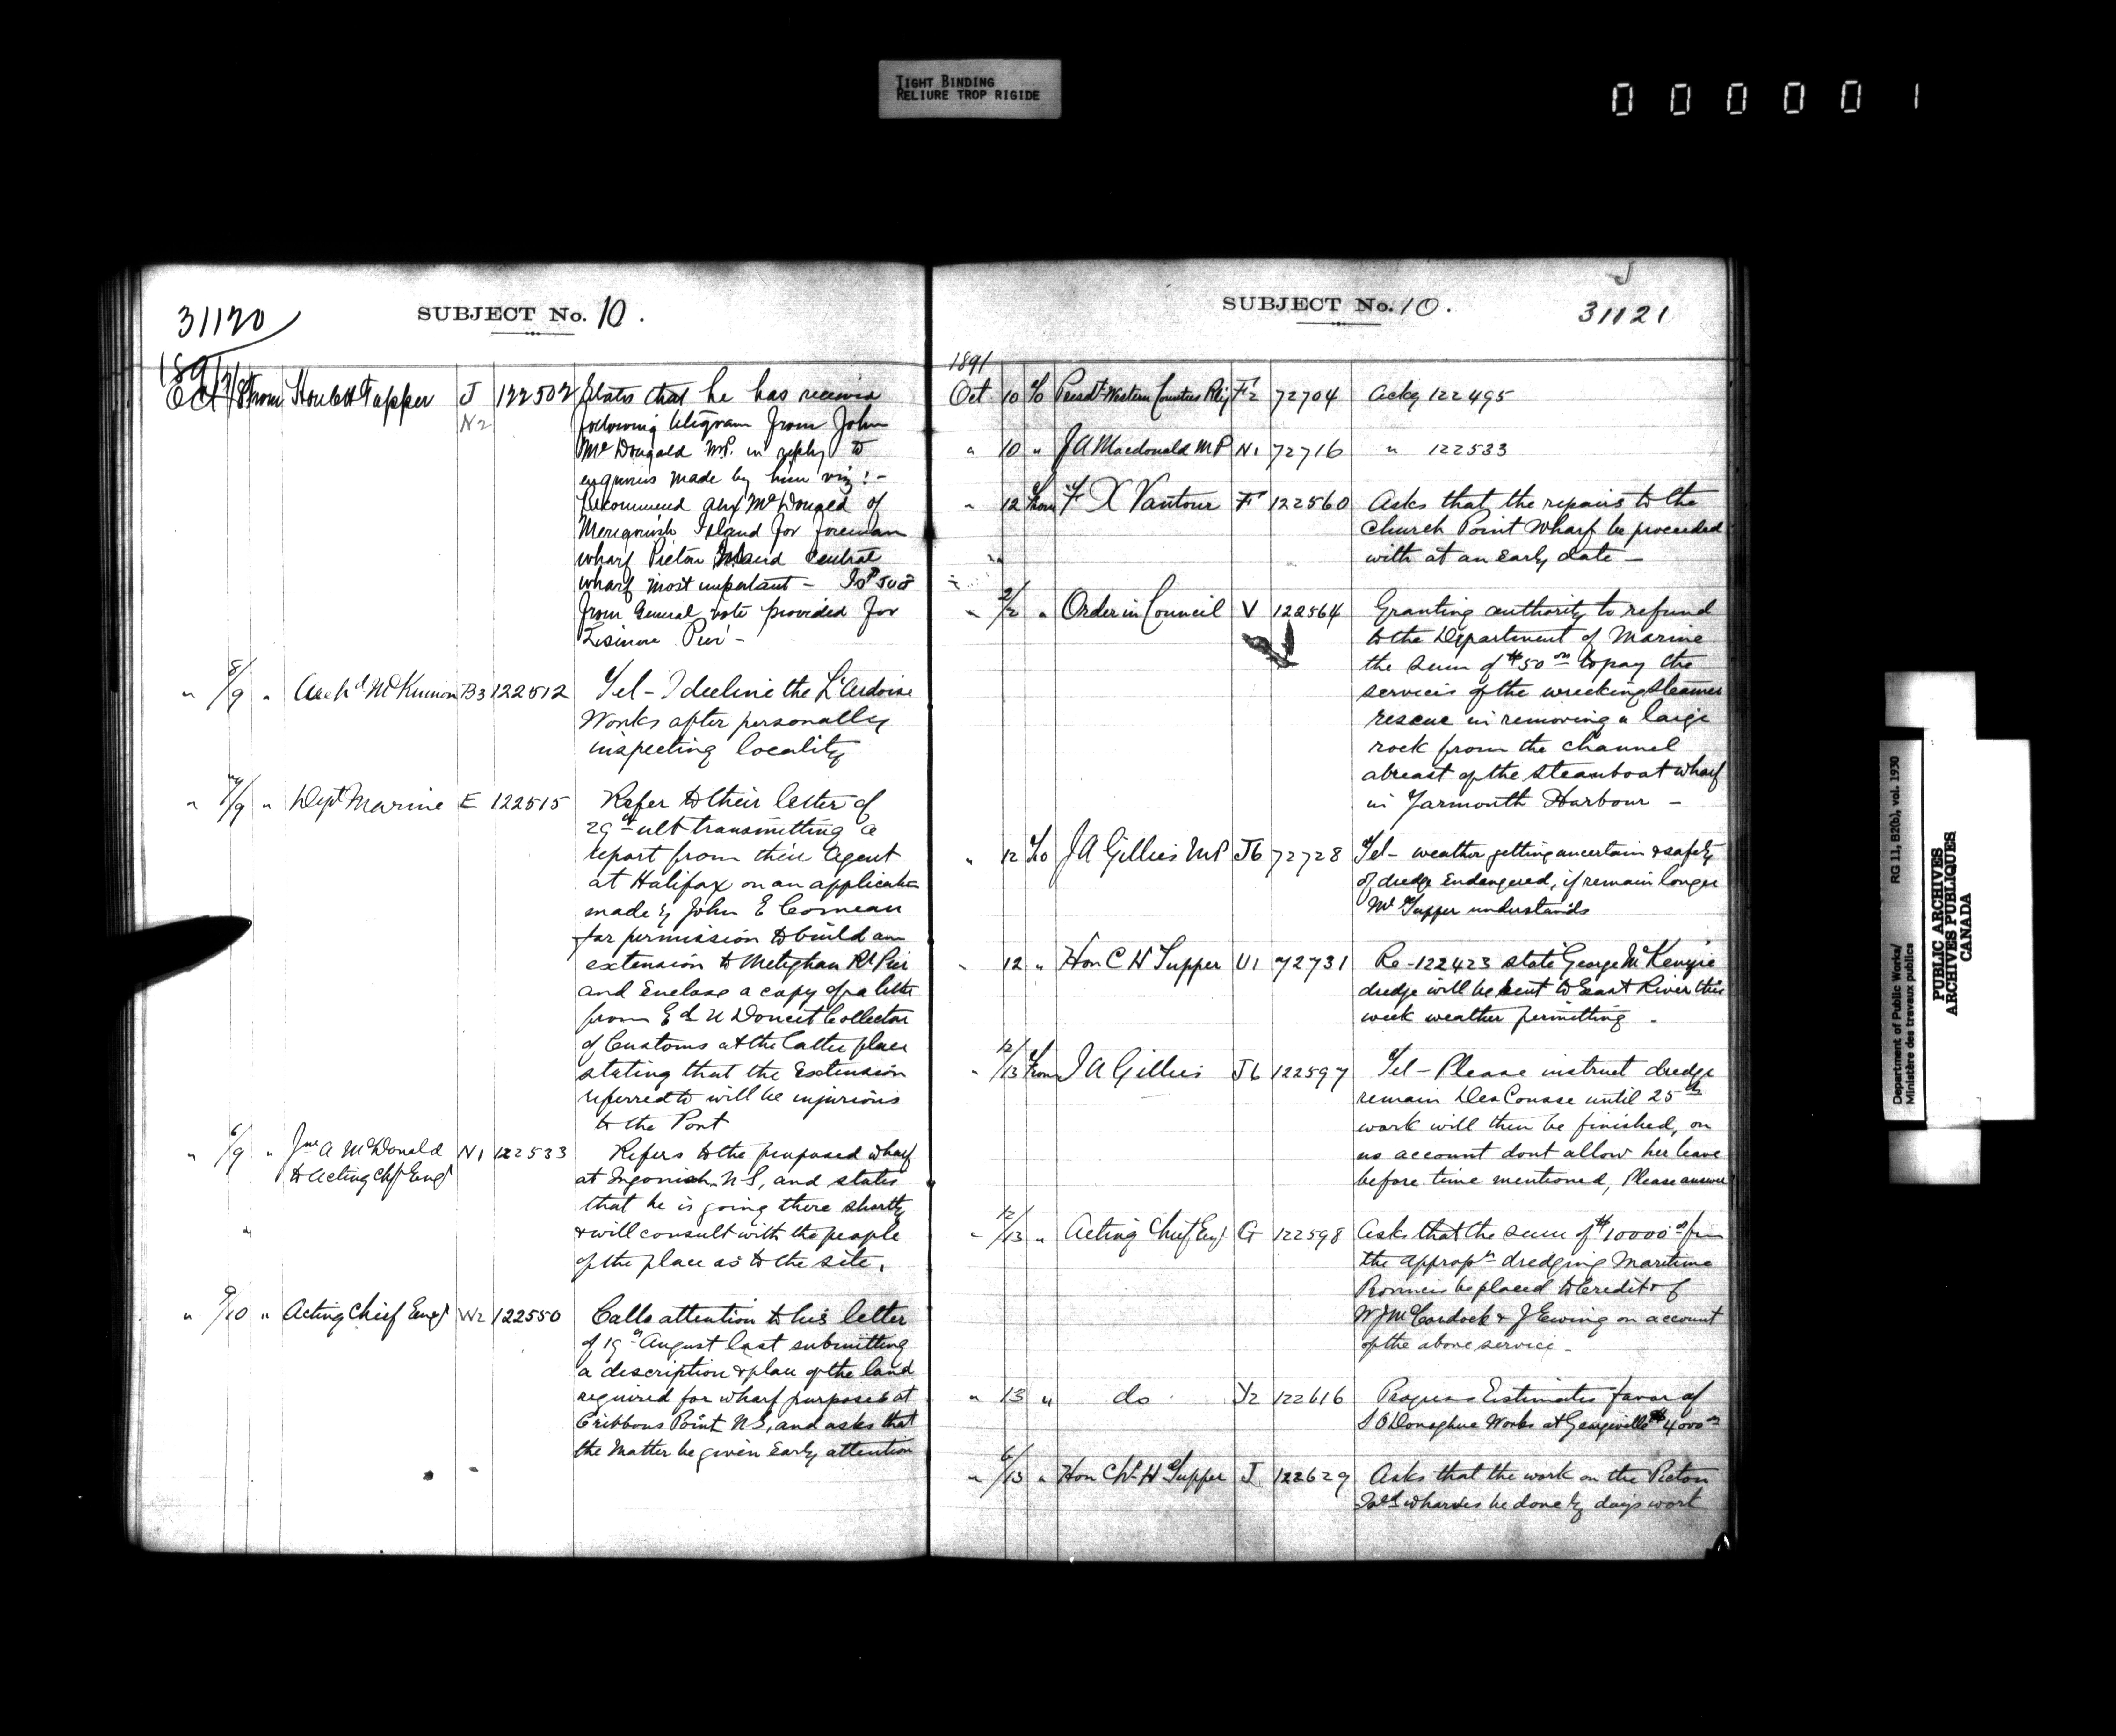 TIGHT BINDING
RELIURE TROP RIGIDE
000001
31120
SUBJECT No. 10.
1891
Oct 7/8 From Hon C H Tupper J 122502 States that he has received
N2 following telegram from John
McDougald M.P. in reply to
enquiries made by him viz:-
Recommend Alex McDougald of
Merigomish Island for foreman
wharf Pictou Island Central
wharf most important -
from General vote provided for
Lismore Pier -
" 8/9 " Arch'd McKinnon B3 122512 Tel - I decline the L'Ardoise
Works after personally
inspecting locality
" 7/9 " Dept Marine E 122515 Refer to their letter of
29th ult transmitting a
report from their Agent
at Halifax on an application
made by John E Comeau
for permission to build an
extension to Meteghan Rr Pier
and Enclose a copy of a letter
from Ed U Doucet Collector
of Customs at the latter place
stating that the Extension
referred to will be injurious
to the Port
" 6/9 " Jno A McDonald N1 122533 Refers to the proposed wharf
to Acting Chf Engr at Ingonish N S, and states
that he is going there shortly
& will consult with the people
of the place as to the site.
" 9/10 " Acting Chief Engr W2 122550 Calls attention to his letter
of 19th August last submitting
a description & plan of the land
required for wharf purposes at
Cribbons Point N S, and asks that
the Matter be given Early attention
SUBJECT No. 10.
31121
1891
Oct 10 To Presdt Western Counties Rly F2 72704 Ackg 122495
" 10 " J A Macdonald M P N1 72716 " 122533
" 12 From F X Vautour F 122560 Asks that the repairs to the
Church Point Wharf be proceeded
with at an early date -
" 2/12 " Order in Council V 122564 Granting authority to refund
to the Department of Marine
the sum of $50 00 to pay the
services of the wrecking steamer
rescue in removing a large
rock from the channel
abreast of the steamboat wharf
in Yarmouth Harbour -
" 12 To J A Gillies M P J6 72728 Tel - weather getting uncertain & safety
of dredge Endangered, if remain longer
Mr Tupper understands
" 12 " Hon C H Tupper U1 72731 Re - 122423 state George McKenzie
dredge will be sent to East River this
week weather permitting -
" 12/13 From J A Gillies J6 122597 Tel - Please instruct dredge
remain DesCousse until 25th
work will then be finished, on
no account dont allow her leave
before time mentioned, Please answer
" 12/13 " Acting Chief Engr G 122598 Asks that the sum of $10000 00 from
the appropn dredging Maritime
Provinces be placed to Credit of
W J McCordock & J Ewing on account
of the above service -
" 13 " do Y2 122616 Progress Estimates favor of
S O'Donoghue Works at Georgeville $4000 00
" 6/13 " Hon Ch H Tupper J 122629 Asks that the work on the Pictou
Isld wharves be done by days work
Department of Public Works/ RG 11, B2(b), vol. 1930
Ministère des travaux publics
PUBLIC ARCHIVES
ARCHIVES PUBLIQUES
CANADA